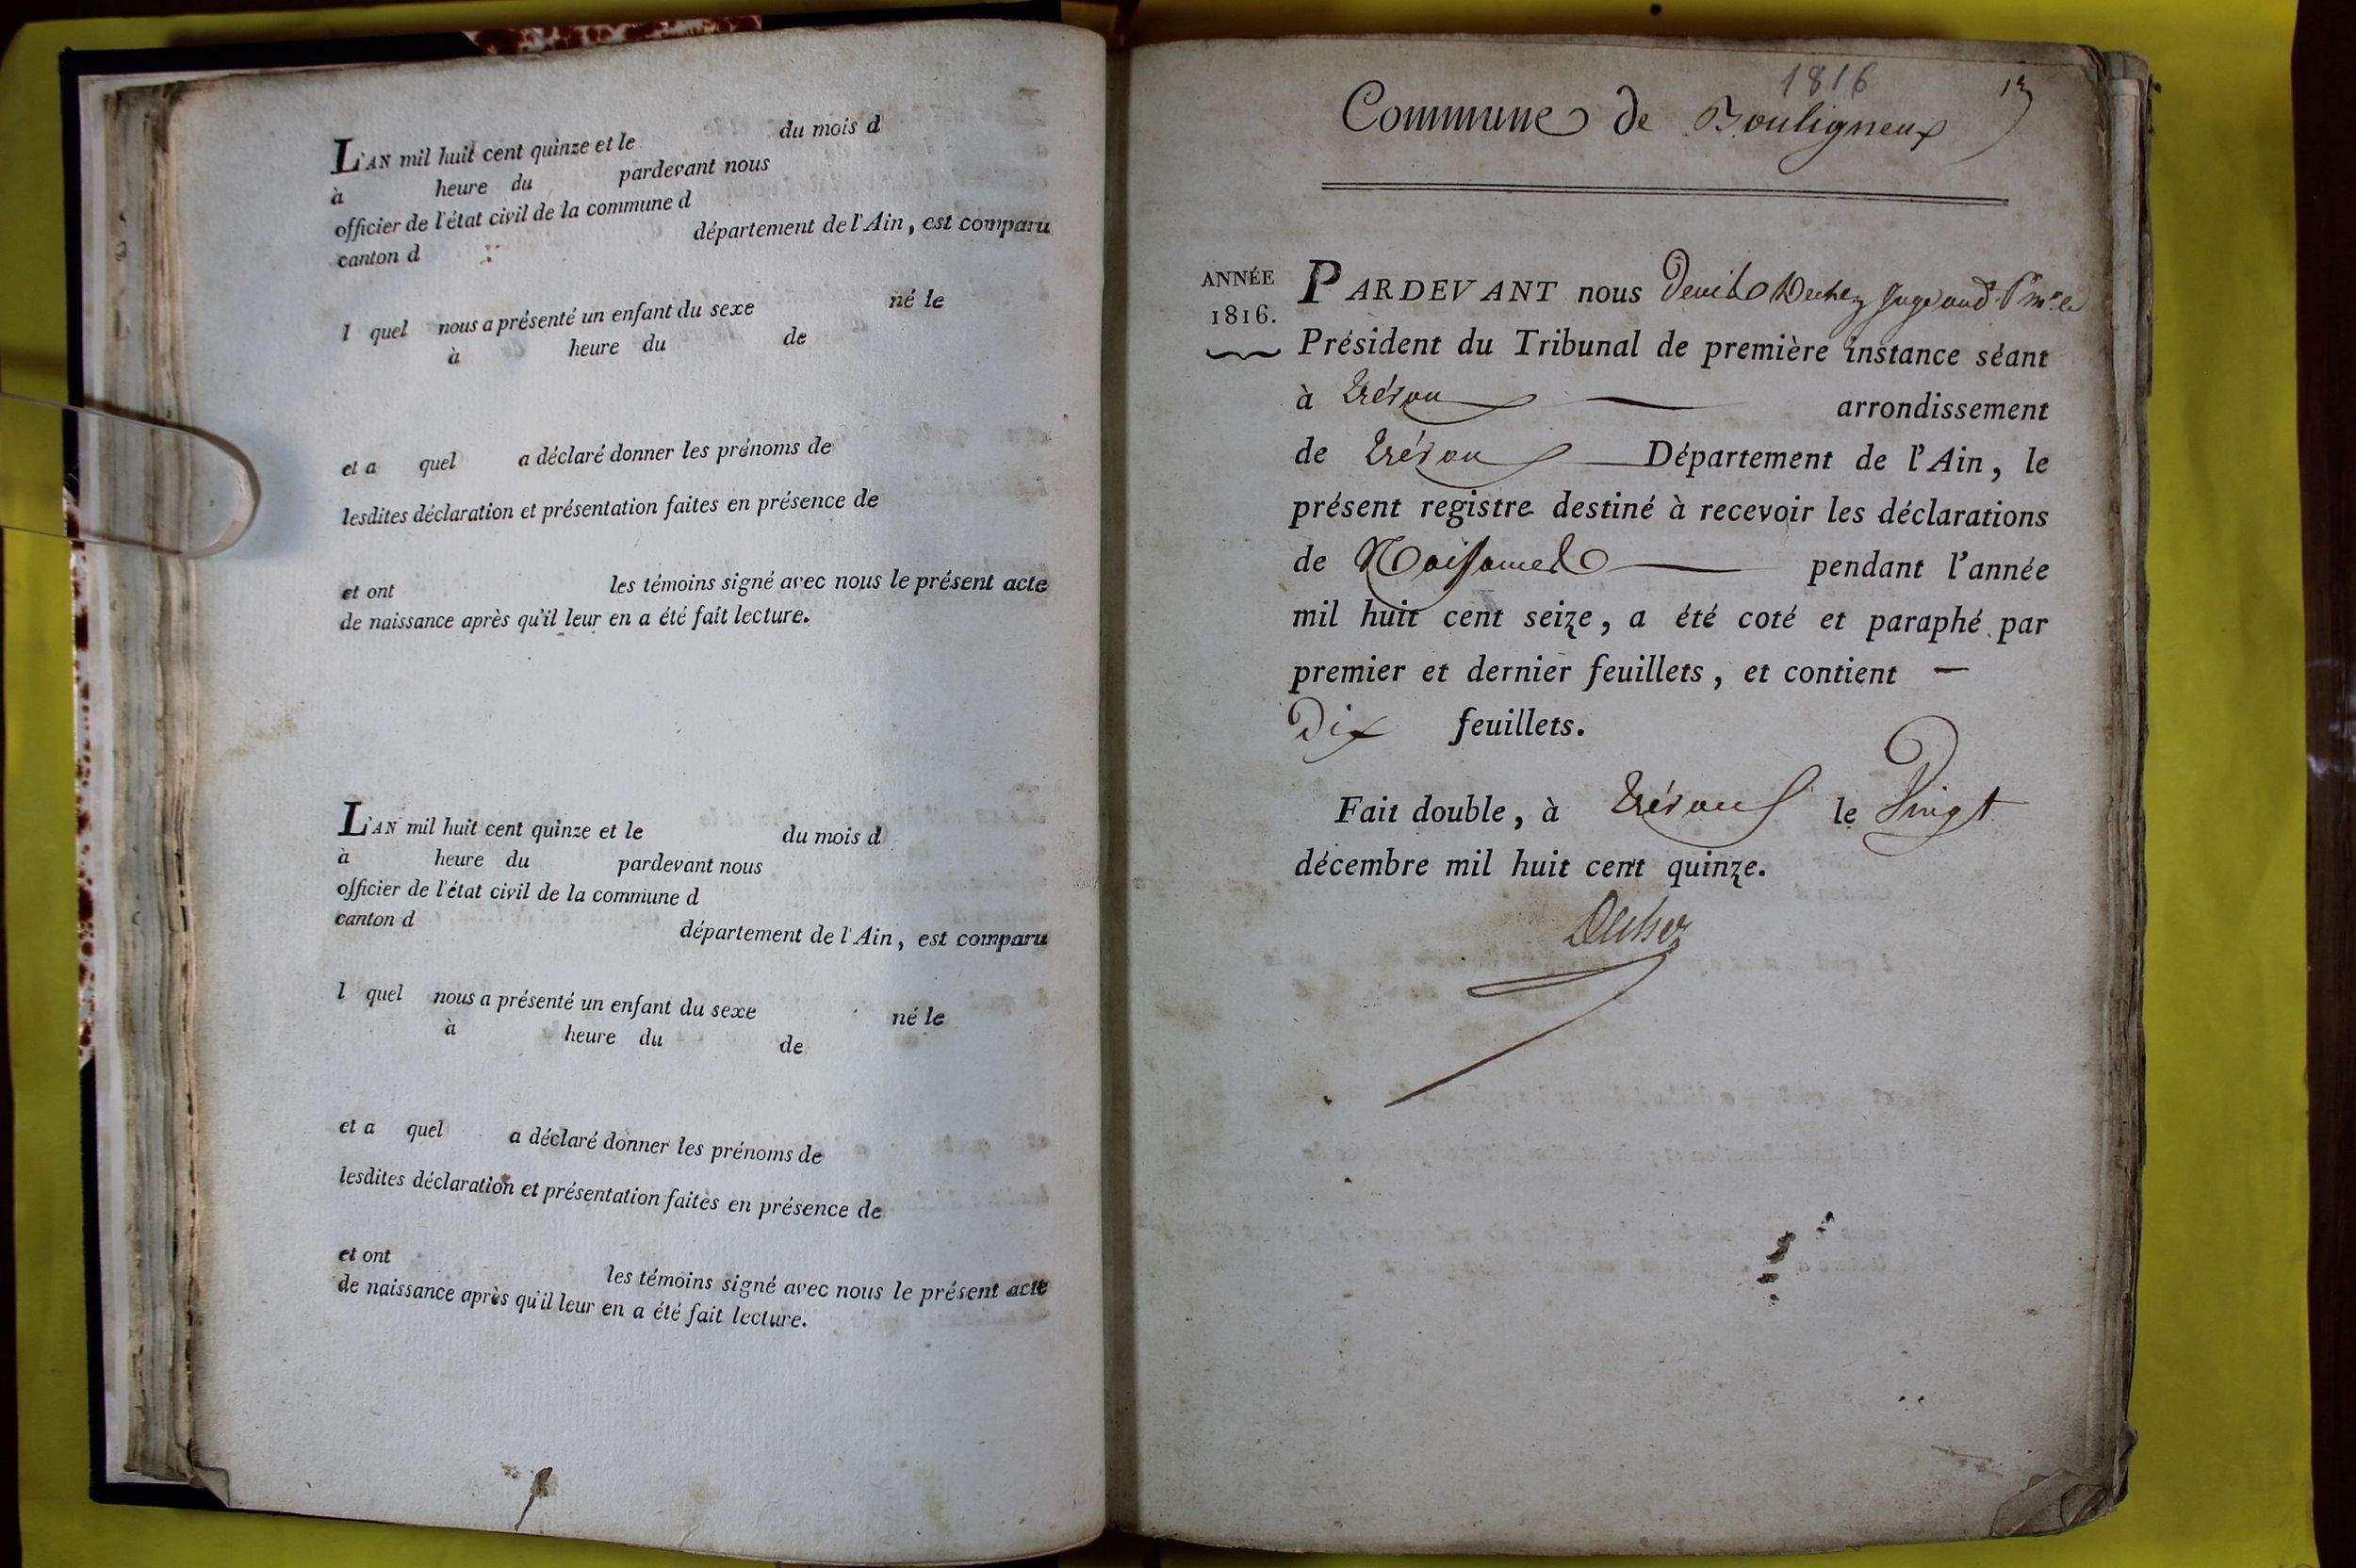 L'AN mil huit cent quinze et le du mois d
à heure du pardevant nous
officier de l'état civil de la commune d
canton d département de l'Ain, est comparu
l quel nous a présenté un enfant du sexe né le
à heure du de
et a quel a déclaré donner les prénoms de
lesdites déclaration et présentation faites en présence de
et ont les témoins signé avec nous le présent acte
de naissance après qu'il leur en a été fait lecture.
L'AN mil huit cent quinze et le du mois d
à heure du pardevant nous
officier de l'état civil de la commune d
canton d département de l'Ain, est comparu
l quel nous a présenté un enfant du sexe né le
à heure du de
et a quel a déclaré donner les prénoms de
lesdites déclaration et présentation faites en présence de
et ont les témoins signé avec nous le présent acte
de naissance après qu'il leur en a été fait lecture.
1816
Commune de Bouligneux
ANNÉE
1816.
PARDEVANT nous
Président du Tribunal de première instance séant
à Trévoux arrondissement
de Trévoux Département de l'Ain, le
présent registre destiné à recevoir les déclarations
de Naissances pendant l'année
mil huit cent seize, a été coté et paraphé par
premier et dernier feuillets, et contient —
Dix feuillets.
Fait double, à Trévoux le Vingt
décembre mil huit cent quinze.